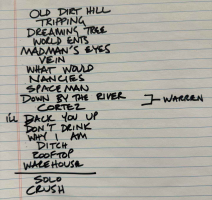 OLD DIRT HILL
TRIPPING
DREAMING TREE
WORLD ENTS
MADMAN'S EYES
VEIN
WHAT WOULD
NANCIES
SPACEMAN
DOWN BY THE RIVER
WARREN
CORTEZ
I'll BACK YOU UP
DON'T DRINK
WHY I AM
DITCH
ROOFTOP
WAREHOUSE
SOLO
CRUSH